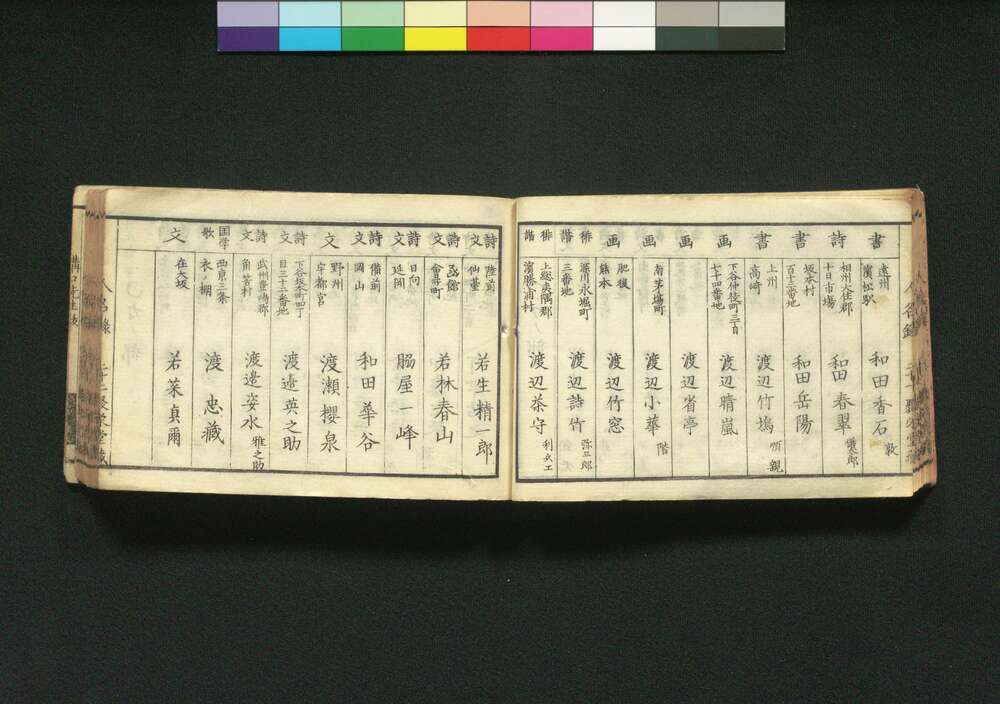 書 遠州 濱松駅 和田香石 敦
詩 相州大住郡 十日市場 和田春翠 儀太郎
書 坂本村 百十三番地 和田岳陽
書 上州 高崎 渡辺竹塢 順親
画 下谷仲徒町三丁目 七十四番地 渡辺晴嵐
画 渡辺省亭
画 南茅場町 渡辺小華 階
画 肥後 熊本 渡辺竹窓
俳諧 深川水堀町 三番地 渡辺詩竹 弥三郎
俳諧 上総夷隅郡 濱勝浦村 渡辺茶守 利兵エ
詩文 陸前 仙臺 若生精一郎
詩文 函館 會所町 若林春山
詩文 日向 延岡 脇屋一峰
詩文 備前 岡山 和田華谷
文 野州 宇都宮 渡瀬櫻泉
詩文 下谷坂本町四丁 目三十三番地 渡邉英之助
詩文 武州豊嶋郡 角筈村 渡邉姿水 雅之助
国学 歌 西京三条 衣ノ棚 渡忠藏
文 在大坂 若菜貞爾
人名録